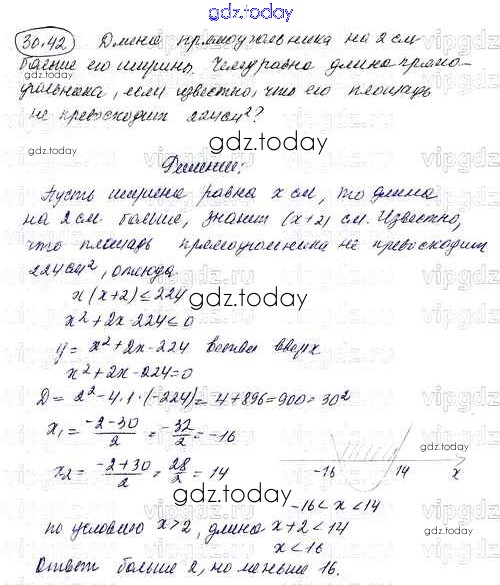 gdz.today
30.42 Длина прямоугольника на 2 см
больше его ширины. Чему равна длина прямо-
угольника, если известно, что его площадь
не превосходит 224 см²?
gdz.today
gdz.today
gdz.today
Решение:
Пусть ширина равна x см, то длина
на 2 см больше, значит (x+2) см. Известно,
что площадь прямоугольника не превосходит
224 см², отсюда
x(x+2)≤224
gdz.today
x²+2x-224≤0
y = x²+2x-224 ветви вверх
x²+2x-224=0
D = 2²-4·1·(-224)=4+896=900=30²
x₁ = -2-30/2 = -32/2 = -16
x₂ = -2+30/2 = 28/2 = 14
gdz.today
-16 14 x
gdz.today
-16<x<14
по условию x>2, длина x+2<14
x<16
Ответ больше 2, но меньше 16.
gdz.today
gdz.today
vipgdz.ru